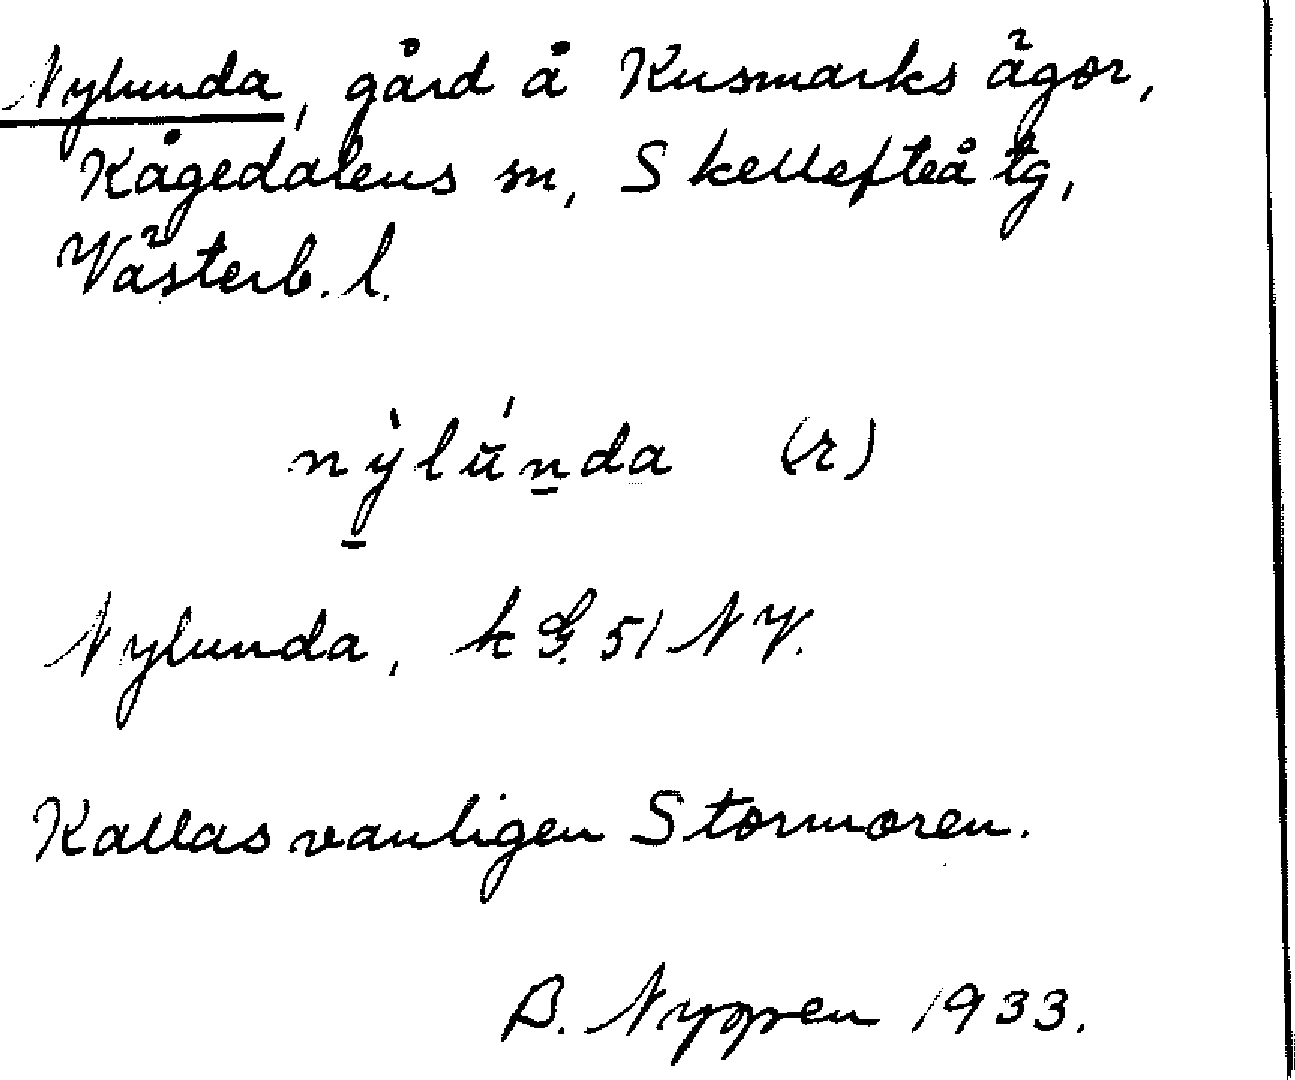 Nylunda, gård å Kusmarks ägor,
Kågedalens sn, Skellefteå tg,
Västerb. l.
nỳlúnda (r)
Nylunda, k G. 51 NV.
Kallas vanligen Stormoren.
B. Nyppen 1933.